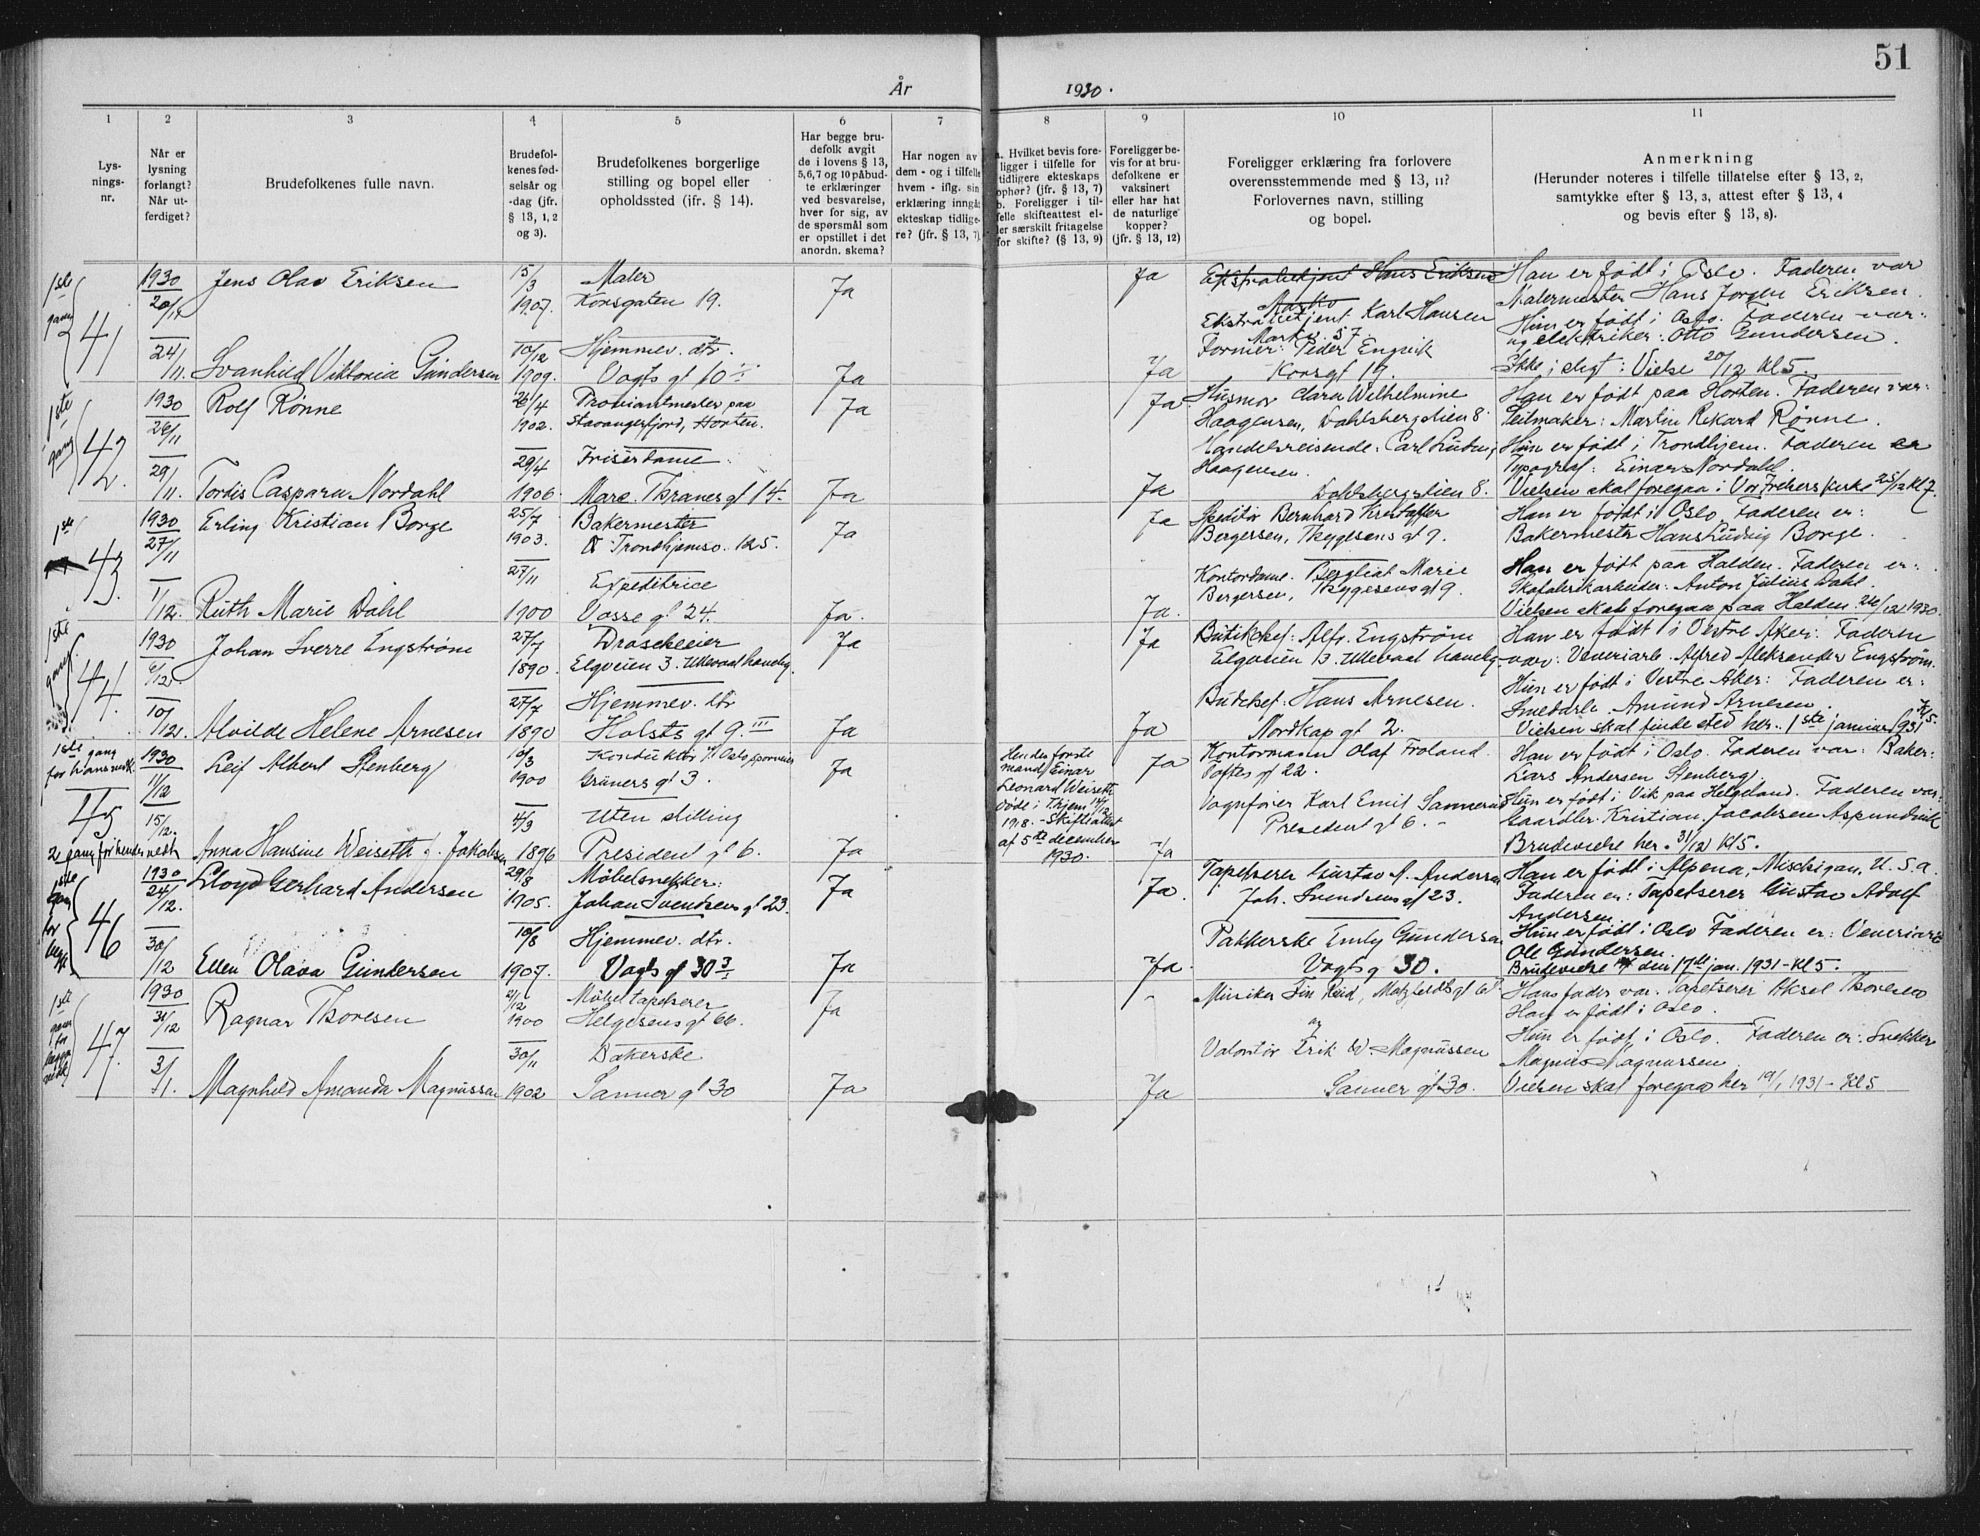 51
År 1930.
1 2 3 4 5 6 7 8 9 10 11
Lys-
nings-
nr.
Når er
lysning
forlangt?
Når ut-
ferdiget?
Brudefolkenes fulle navn.
Brudefol-
kenes fød-
selsår og
-dag (jfr.
§ 13, 1, 2
og 3).
Brudefolkenes borgerlige
stilling og bopel eller
opholdssted (ifr. § 14).
Har begge bru-
defolk avgit
de i lovens § 13,
5,6,7 og 10 påbud-
te erklæringer
ved besvarelse,
hver for sig, av
de spørsmål som
er opstillet i det
anordn. skema?
Har nogen av
dem - og i tilfelle
hvem - iflg. sin
erklæring inngåt
ekteskap tidlige-
re? (jfr. § 13, 7)
a. Hvilket bevis fore-
ligger i tilfelle for
tidligere ekteskaps
ophør? (jfr. § 13, 7)
b. Foreligger i til-
felle skifteattest el-
ler særskilt fritagelse
for skifte? (§ 13, 9)
Foreligger be-
vis for at bru-
defolkene er
vaksinert
eller har hat
de naturlige
kopper?
(jfr. § 13, 12)
Foreligger erklæring fra forlovere
overensstemmende med § 13, 11?
Forlovernes navn, stilling
og bopel.
Anmerkning
(Herunder noteres i tilfelle tillatelse efter § 13, 2,
samtykke efter § 13, 3, attest efter § 13, 4
og bevis efter § 13, 8).
1ste
gang
41
1930
20/11
24/11.
Jens Olav Eriksen
15/3
1907.
Maler
Korsgaten 19.
Ja
Ja
Ekstrabetjent Hans Eriksen
Ekstrabetjent Karl Hansen
Markv. 57.
Former: Peder Engvik
Korsgt 19.
Han er født i Oslo. Faderen var
Malermester Hans Jørgen Eriksen.
Hun er født i Oslo. Faderen var:
elektriker: Otto Gundersen.
Ikke i slegt: Vielse 20/12 kl 5.
Svanhild Viktoria Gundersen
10/12
1909.
Hjemmev. dtr.
Vogts gt 10
Ja
Ja
1ste
gang
42.
1930
26/11
29/11.
Rolf Rønne
26/4
1902.
Proviantmester paa
Stavangerfjord, Horten.
Ja
Ja
Husmor Clara Wilhelmine
Haagensen, Dahlsbergstien 8.
Handelsreisende: Carl Ludvig
Haagensen.
Dahlsbergstien 8.
Han er født paa Horten. Faderen var:
Seilmaker: Martin Rikard Rønne.
Hun er født i Trondhjem. Faderen er
Typograf: Einar Nordahl.
Vielsen skal foregaa i Vor Frelsers kirke 25/12 kl 7.
Tordis Caspara Nordahl
29/4
1906.
Frisérdame.
Marc. Thranes gt 14.
Ja
Ja
1ste
43.
1930
27/11
1/12.
Erling Kristian Borge
25/7
1903.
Bakermester
Trondhjemsv. 125.
Ja
Ja
Speditør Bernhard Kristoffer
Bergersen, Thygesens gt 9.
Kontordame. Bergliot Marie
Bergersen, Thygesens gt 9.
Han er født i Oslo. Faderen er:
Bakermester Hans Ludvig Borge.
Hun er født paa Halden. Faderen er:
Skofabrikarbeider: Anton Julius Dahl.
Vielsen skal foregaa paa Halden 26/12 1930.
Ruth Marie Dahl
27/11
1900
Expeditrice
Vosse gt 24.
Ja.
Ja.
1ste
gang.
44.
1930
6/12.
10/12.
Johan Sverre Engstrøm
27/7
1890.
Droscheeier
Elgveien 3. Ullevaal haveby.
Ja
Ja
Butikchef: Alfr. Engstrøm
Elgveien 13. Ullevaal haveby.
Hans Arnesen.
Nordkap gt 2.
Han er født i Vestre Aker. Faderen
var: Veveriarb. Alfred Aleksander Engstrøm.
Hun er født i Vestre Aker: Faderen er:
Smedarb. Amund Arnesen.
Vielsen skal finde sted her. 1ste januar 1931 Kl 5.
Alvilde Helene Arnesen
27/7
1890
Hjemmev. dtr
Holsts gt 9. III
Ja
Ja
1ste gang
for hans vedk.
45
2 gang for hendes vedk
1930
11/12
15/12.
Leif Albert Stenberg
6/3
1900
Konduktør v. Oslo sporveier
Grüners gt 3.
Ja
Hendes første
mand Einar
Leonard Weiseth
døde i Thjem
1918. - Skifteattest
af 5te december
1930.
Ja
Kontormann Olaf Froland.
Toftes gt 22.
Vognfører Karl Emil Sannerud
President gt 6.
Han er født i Oslo. Faderen var: Baker:
Lars Andersen Stenberg.
Hun er født i Vik paa Helgeland. Faderen var:
Gaardbr. Kristian Jacobsen Aspundvik
Brudevielse her. 31/12 Kl 5.
Anna Hansine Weiseth f. Jakobsen
4/3
1896
Uten stilling
President gt 6.
Ja
Ja
1ste
gang
for
begge
46
1930
24/12.
30/12
Lloyd Gerhard Andersen
29/8
1905.
Møbelsnekker:
Johan Svendsens gt 23.
Ja
Ja.
Tapetserer Gustav A. Andersen
Joh. Svendsens gt 23.
Pakkerske Emly Gundersen
Vogts g 30.
Han er født i Alpena, Mischigan, U.S.a.
Faderen er: Tapetserer Gustav Adolf
Andersen
Hun er født i Oslo Faderen er: Veveriarb
Ole Gundersen.
Brudevielse den 17de jan. 1931 - Kl 5.
Ellen Olava Gundersen
10/8
1907.
Hjemmev. dtr.
Vogts gt 30
Ja
Ja.
1ste
gang
for
begge
vedk
47.
1930
31/12
3/1.
Ragnar Thoresen
2/12
1900
Møbeltapetserer
Helgesens gt 66.
Ja
-
Musiker Fin Ruud, Motzfeldts gt 6
og
Valontør Erik W. Magnussen
Sanner gt 30.
Hans fader var Tapetserer Aksel Thoresen
Han er født i Oslo.
Hun er født i Oslo. Faderen er: Snekker
Magnus Magnussen
Vielsen skal foregaa her 10/1 1931 - Kl 5
Magnhild Amanda Magnussen
30/11
1902
Sanner gt 30
Ja
Ja